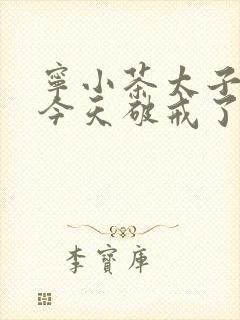 寧小茶太子
今天破戒了
李寶庫